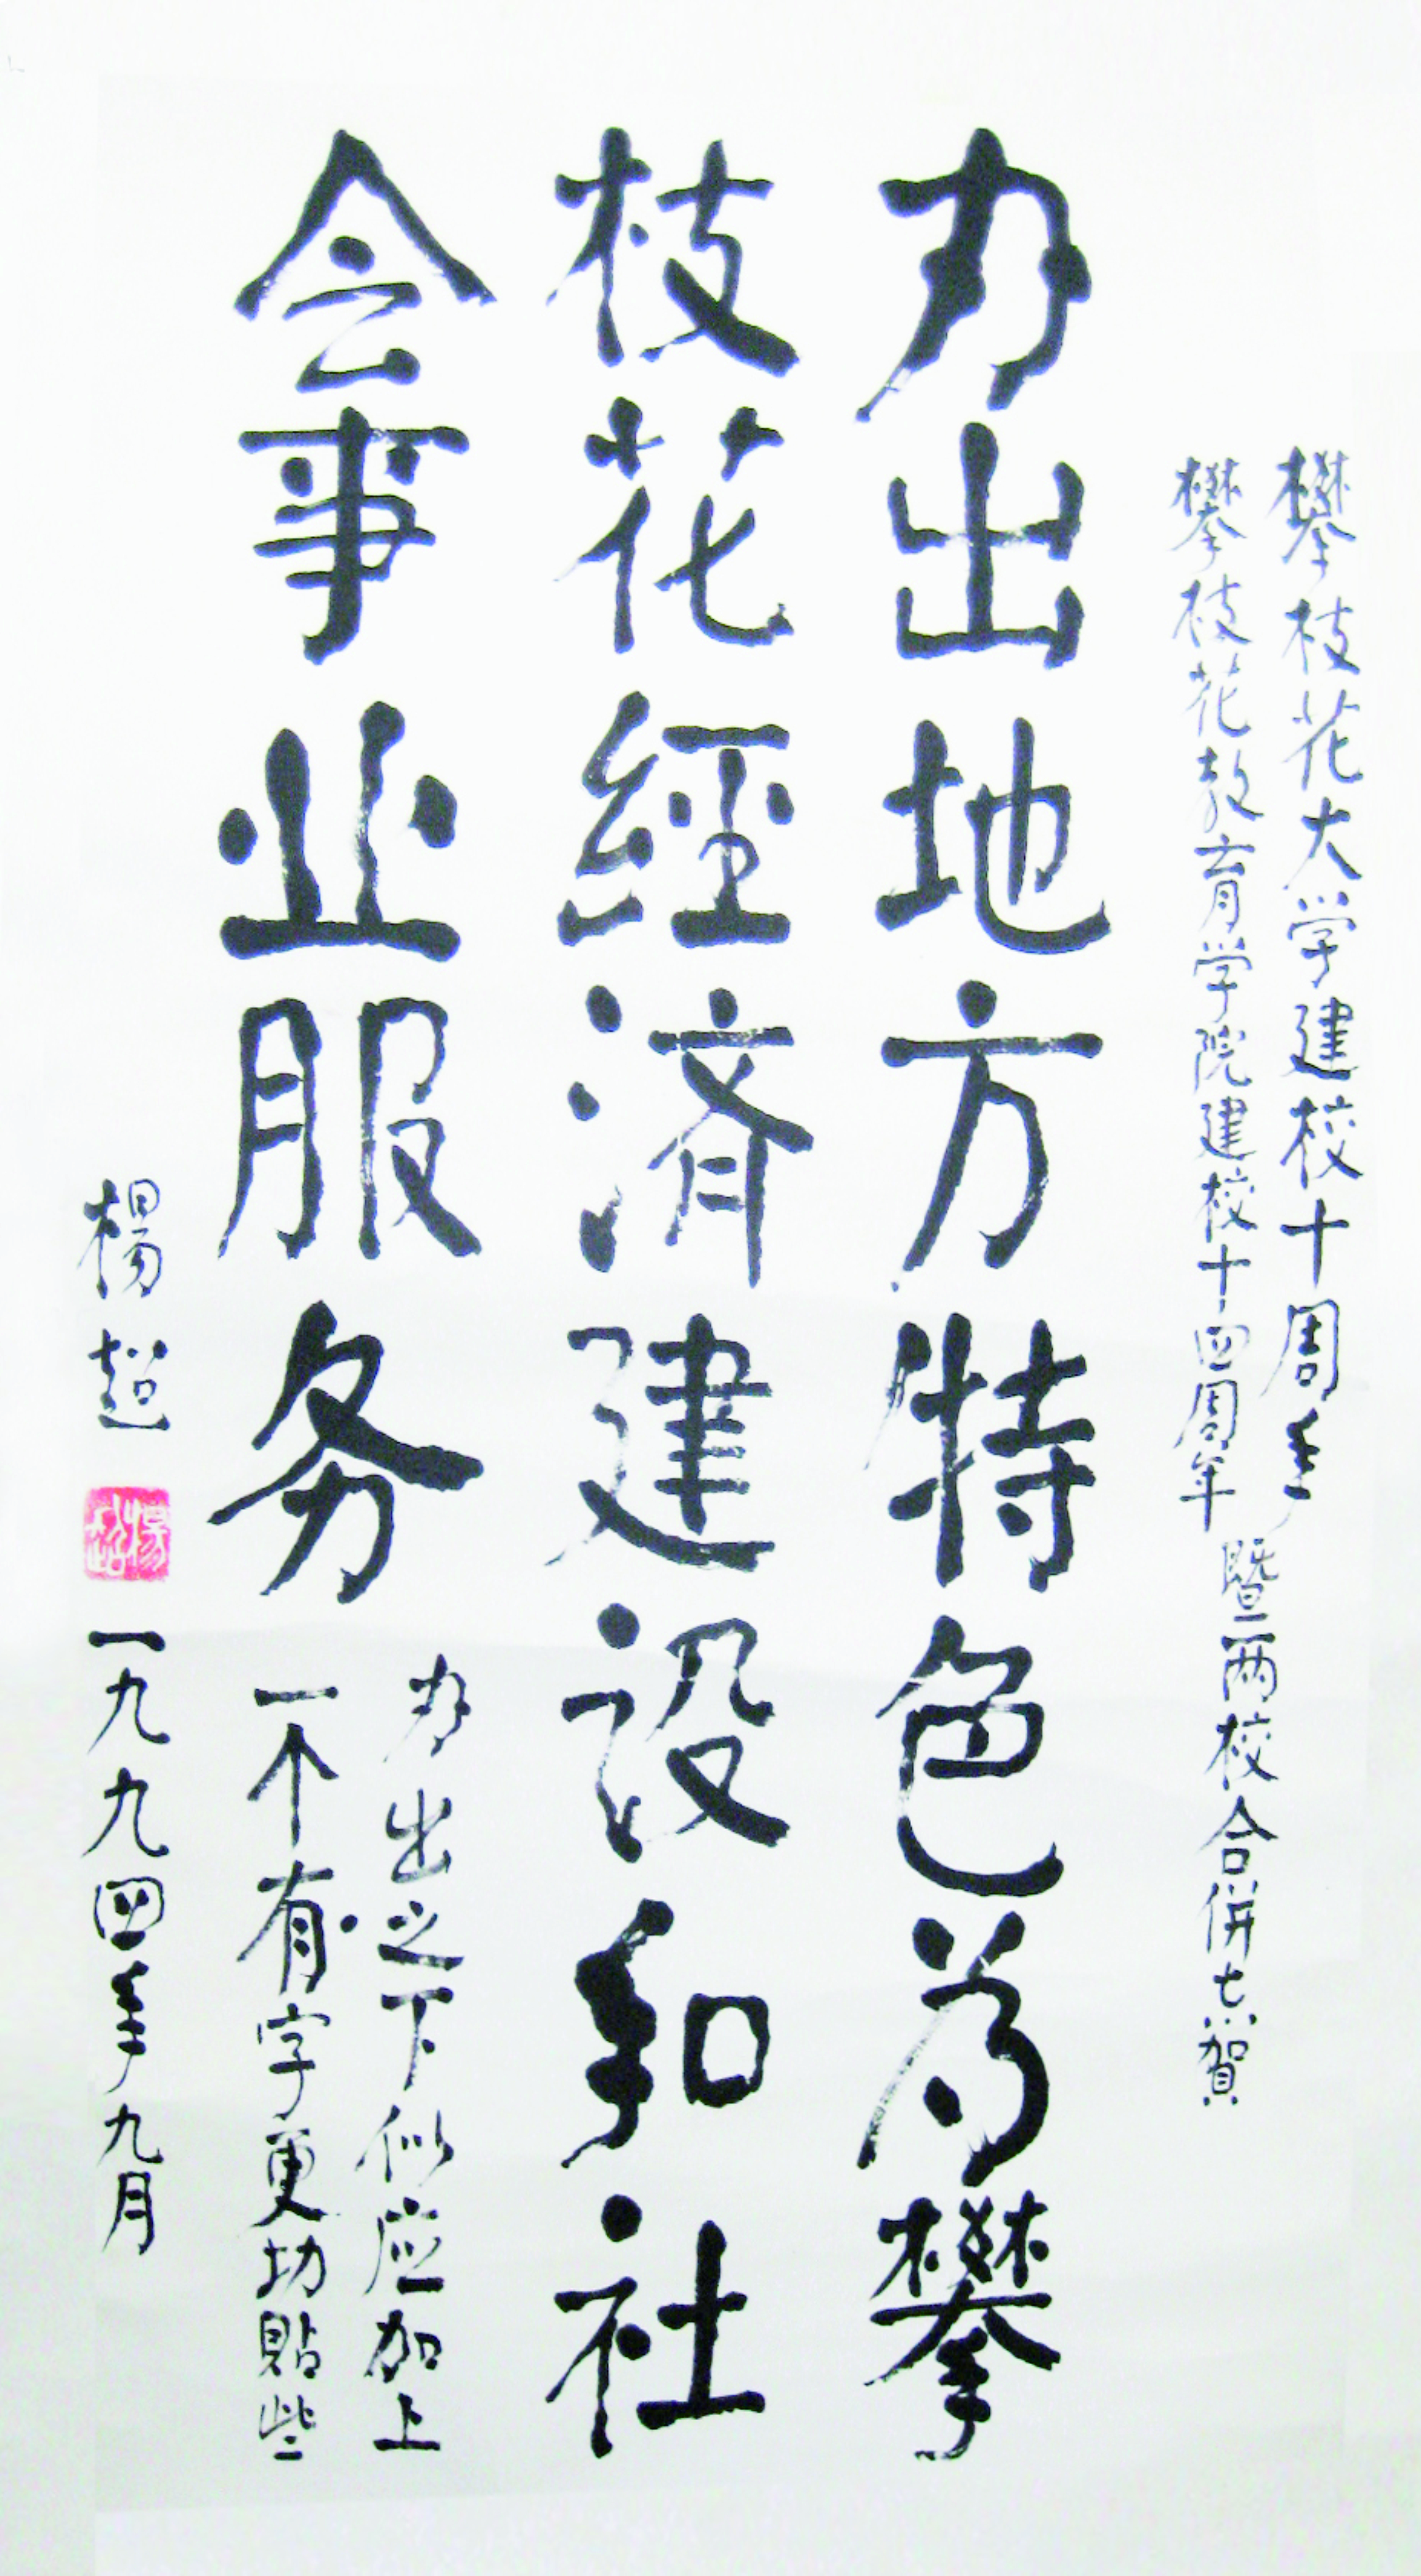 攀枝花大学建校十周年
攀枝花教育学院建校十四周年
暨两校合併志賀
办出地方特色为攀
枝花經済建设和社
会事业服务
办出之下似应加上
一个有字更切貼些
楊超
楊超
一九九四年九月